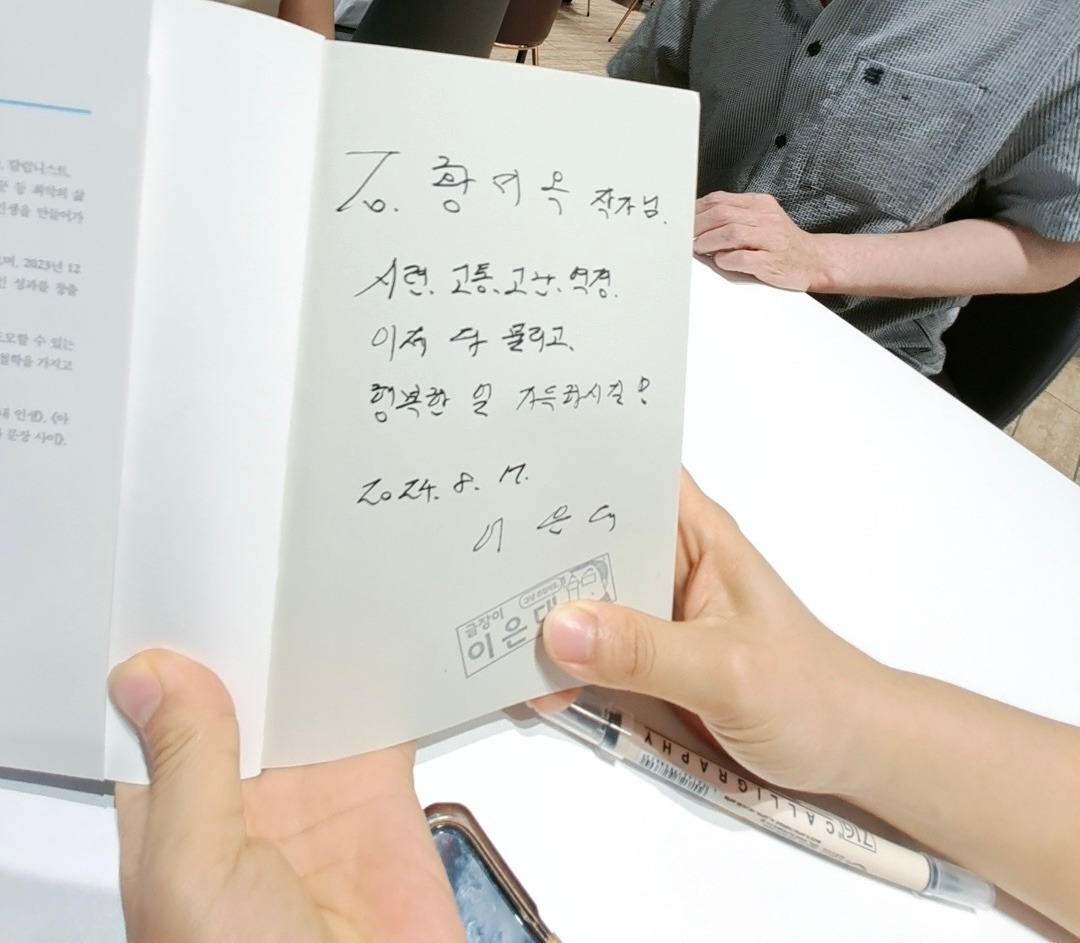 칼럼니스트,
등 최악의 삶
인생을 만들어가
2023년 12
성과를 창출
도모할 수 있는
철학을 가지고
내 인생》, 《아
문장 사이》,
황미옥 작가님.
시련, 고통, 고난, 역경.
이제 다 물리고,
행복한 일 가득하시길!
2024. 8. 17.
이은대
글장이
이은대
ZIG CALLIGRAPHY